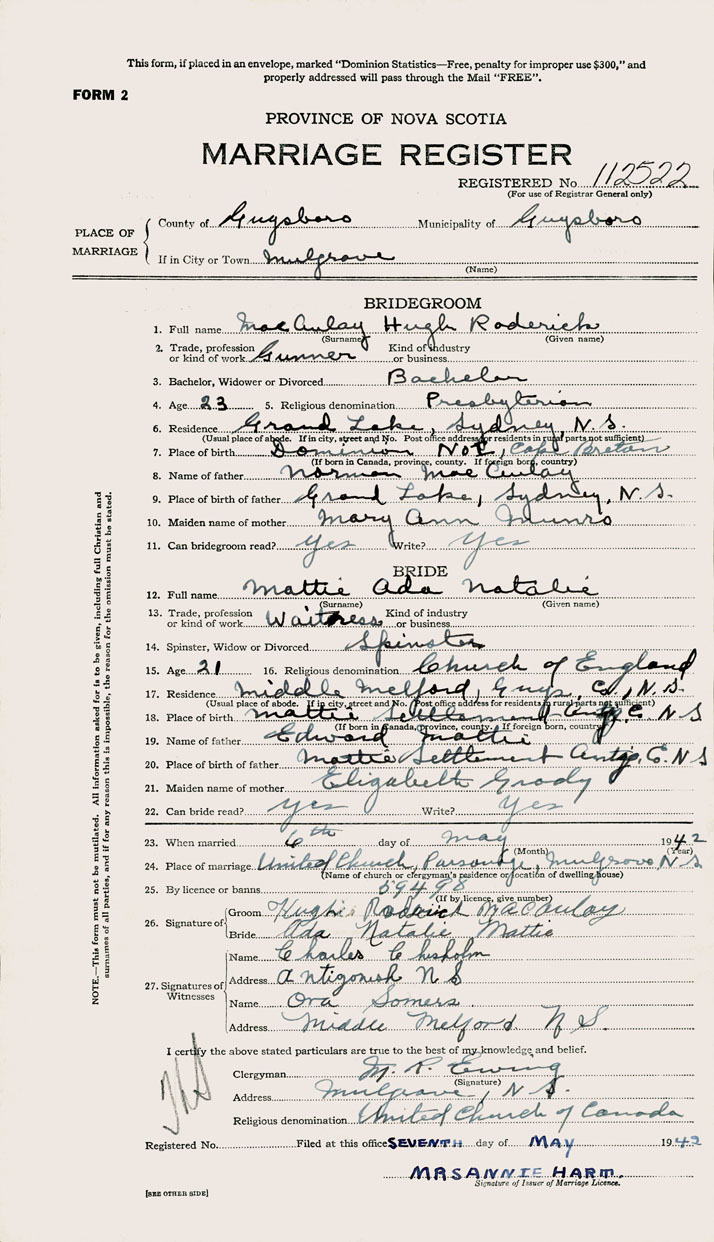 This form, if placed in an envelope, marked "Dominion Statistics—Free, penalty for improper use $300," and
properly addressed will pass through the Mail "FREE".
FORM 2
PROVINCE OF NOVA SCOTIA
MARRIAGE REGISTER
REGISTERED No. 112522
(For use of Registrar General only)
PLACE OF MARRIAGE
County of Guysboro Municipality of Guysboro
If in City or Town Mulgrave
(Name)
BRIDEGROOM
1. Full name MacAulay Hugh Roderick
(Surname) (Given name)
2. Trade, profession or kind of work Gunner Kind of industry or business
3. Bachelor, Widower or Divorced Bachelor
4. Age 23 5. Religious denomination Presbyterian
6. Residence Grand Lake, Sydney, N.S.
(Usual place of abode. If in city, street and No. Post office address for residents in rural parts not sufficient)
7. Place of birth Dominion No 1, Cape Breton
(If born in Canada, province, county. If foreign born, country)
8. Name of father Norman MacAulay
9. Place of birth of father Grand Lake, Sydney, N.S.
10. Maiden name of mother Mary Ann Munro
11. Can bridegroom read? Yes Write? Yes
BRIDE
12. Full name Mattie Ada Natalie
(Surname) (Given name)
13. Trade, profession or kind of work Waitress Kind of industry or business
14. Spinster, Widow or Divorced Spinster
15. Age 21 16. Religious denomination Church of England
17. Residence Middle Melford, Guys. Co., N.S.
(Usual place of abode. If in city, street and No. Post office address for residents in rural parts not sufficient)
18. Place of birth Mattie Settlement Antg. C. N S
(If born in Canada, province, county. If foreign born, country)
19. Name of father Edward Mattie
20. Place of birth of father Mattie Settlement Antg. C. N S
21. Maiden name of mother Elizabeth Grady
22. Can bride read? Yes Write? Yes
23. When married 6th day of May 1942
(Month) (Year)
24. Place of marriage United Church, Parsonage, Mulgrave, N S
(Name of church or clergyman's residence or location of dwelling house)
25. By licence or banns 59498
(If by licence, give number)
26. Signature of
Groom Hugh Roderick MacAulay
Bride Ada Natalie Mattie
27. Signatures of Witnesses
Name Charles Chisholm
Address Antigonish N S
Name Ora Somers
Address Middle Melford N S.
I certify the above stated particulars are true to the best of my knowledge and belief.
Clergyman M. R. Ewing
(Signature)
Address Mulgrave, N S.
Religious denomination United Church of Canada
Registered No. Filed at this office SEVENTH day of MAY 1942
MRS ANNIE HARM.
Signature of Issuer of Marriage Licence.
[SEE OTHER SIDE]
NOTE.—This form must not be mutilated. All information asked for is to be given, including full Christian and
surnames of all parties, and if for any reason this is impossible, the reason for the omission must be stated.